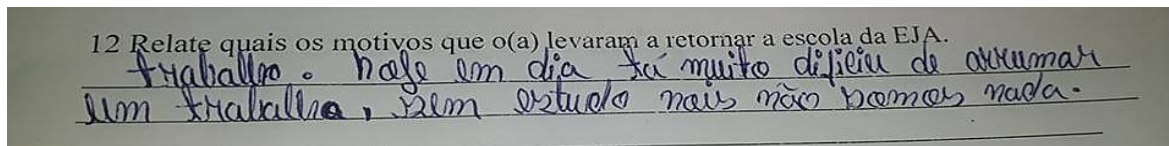 12 Relate quais os motivos que o(a) levaram a retornar a escola da EJA.
trabalho. hoje em dia tá muito dificiu de arrumar
um trabalho, sem estudo nois não somos nada.